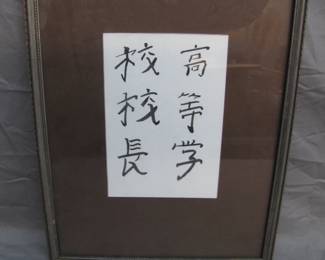 高等学
校校長